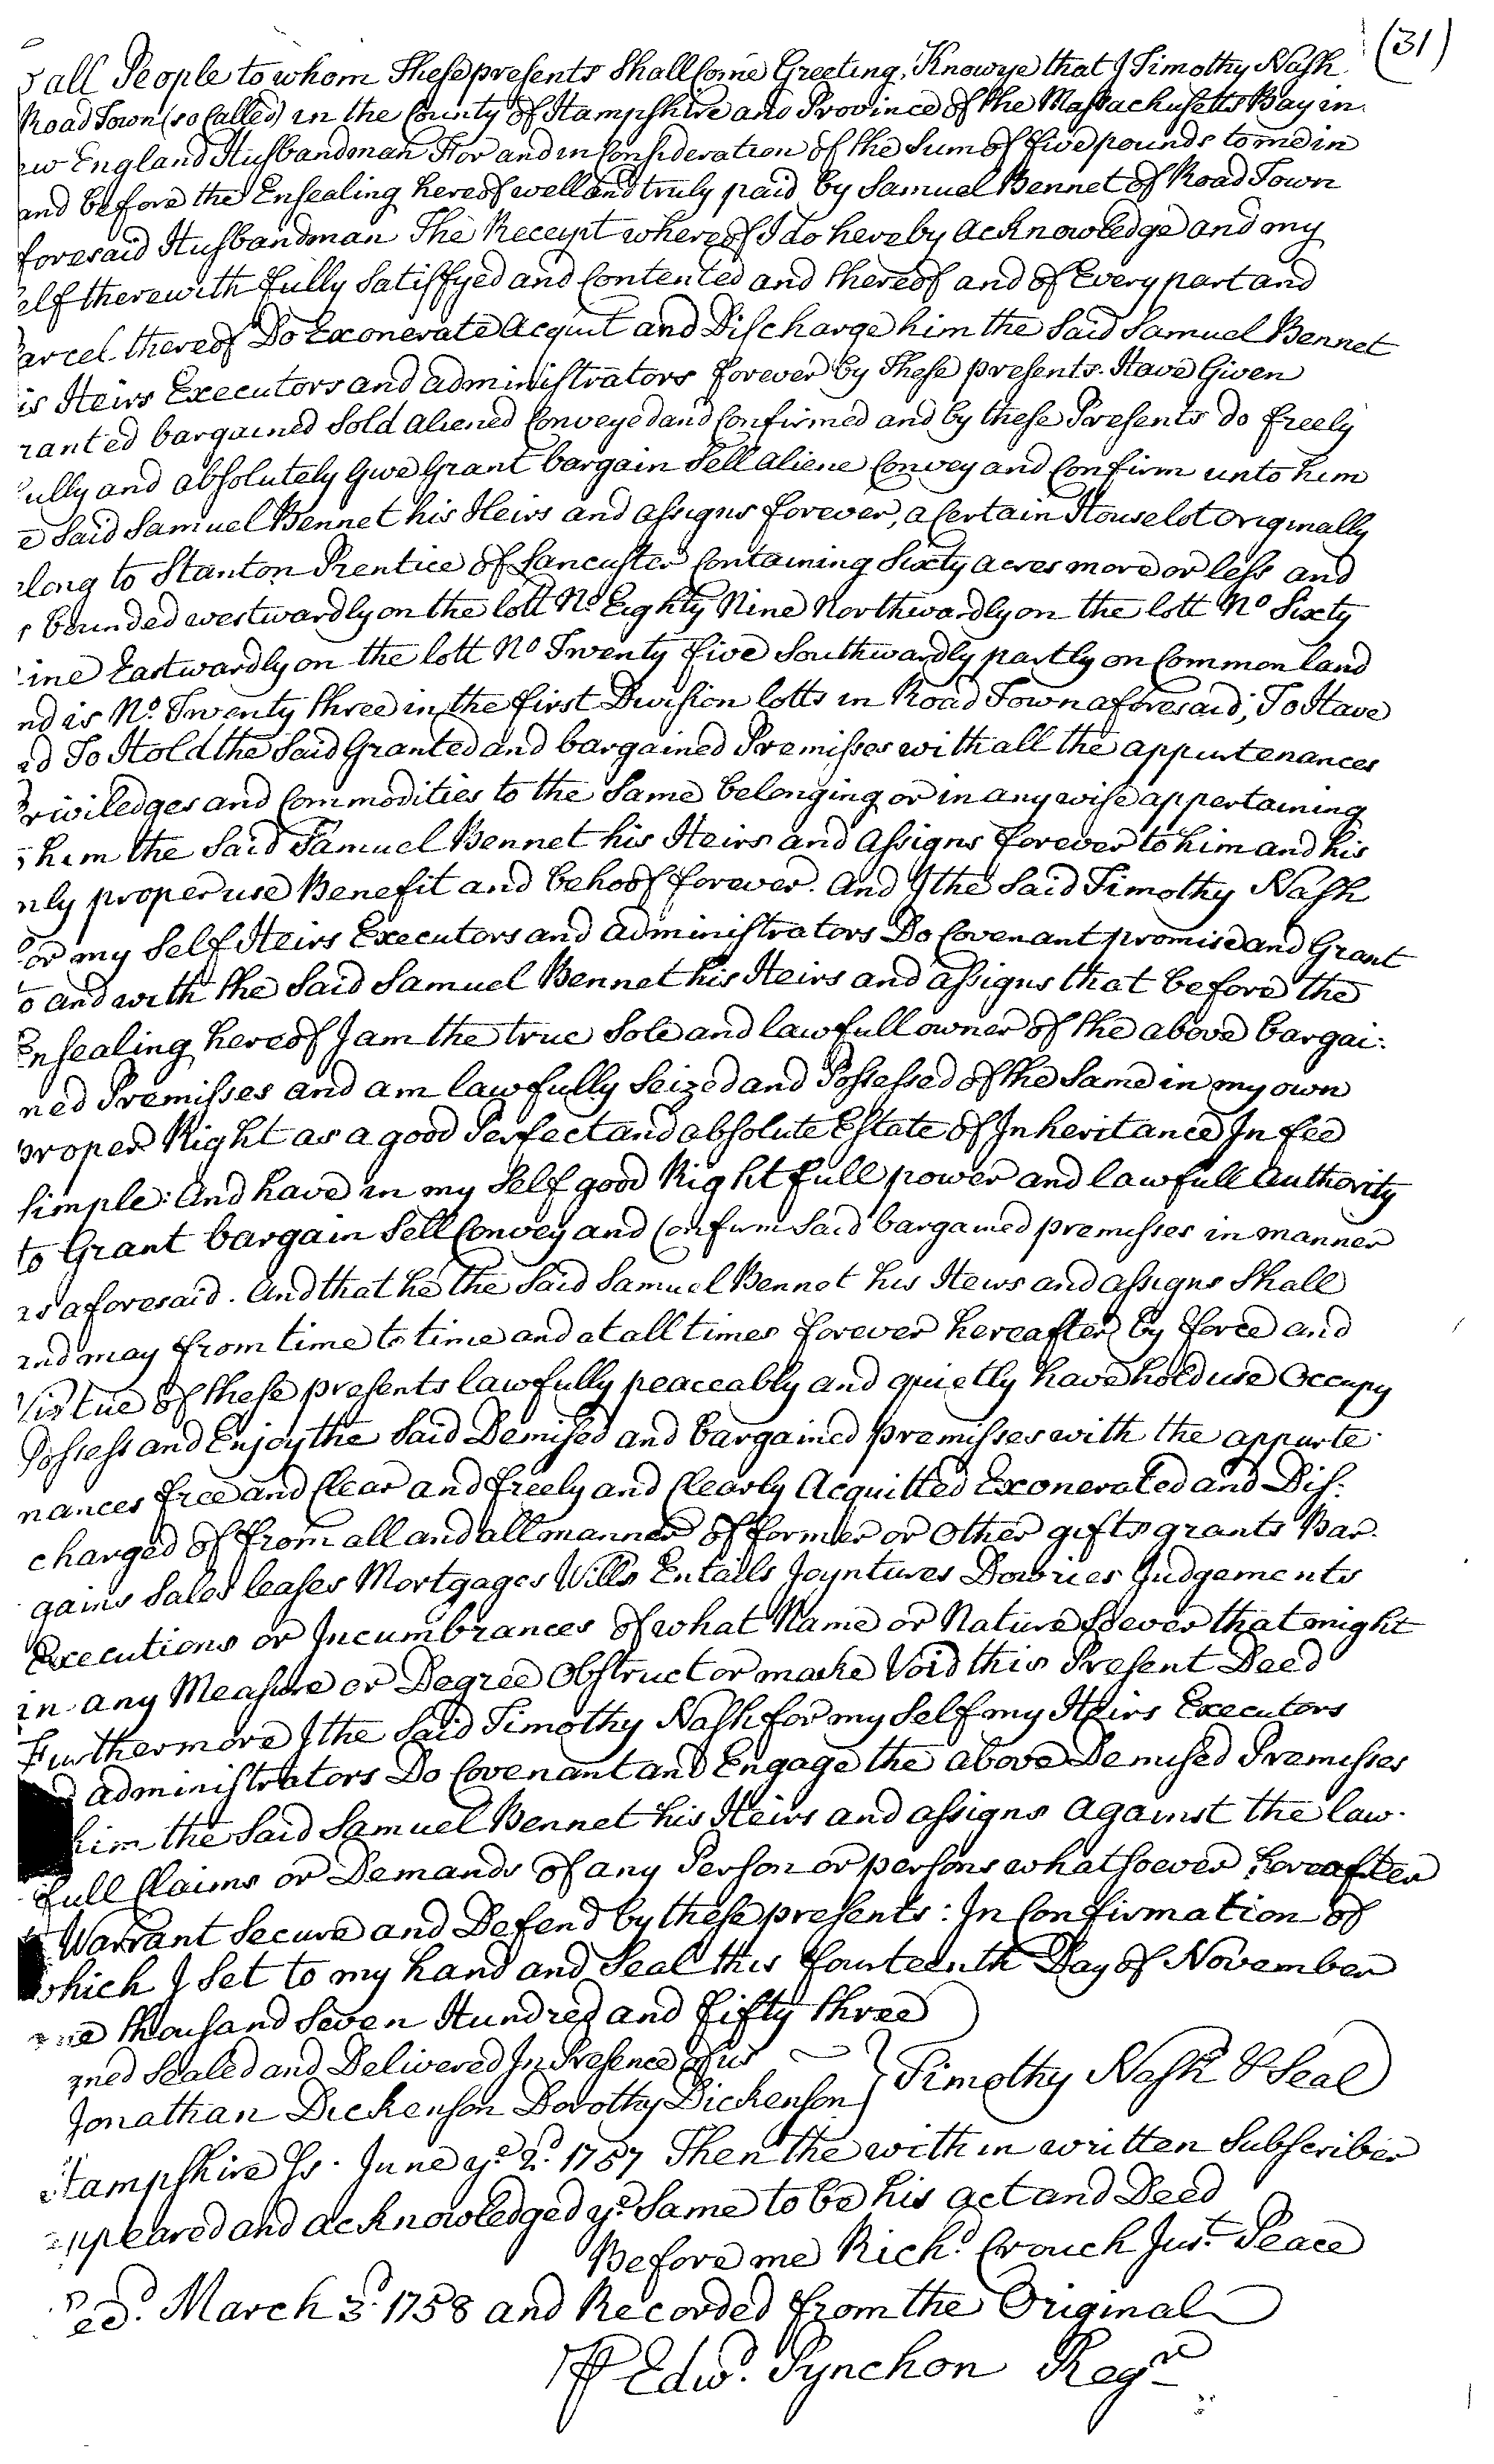 (31)
all People to whom These presents Shall Come Greeting, Know ye that I Timothy Nash
Road Town (so Called) in the County of Hampshire and Province of the Massachusetts Bay in
ew England Husbandman For and in Consideration of the Sum of five pounds to me in
and before the Ensealing hereof well and truly paid by Samuel Bennet of Road Town
foresaid Husbandman The Receipt whereof I do hereby acknowledge and my
elf therewith fully Satisfyed and Contented and thereof and of Every part and
arcel thereof Do Exonerate acquit and Discharge him the Said Samuel Bennet
is Heirs Executors and administrators forever by These presents. Have Given
ranted bargained Sold aliened Conveyed and Confirmed and by these Presents do freely
ully and absolutely Give Grant bargain Sell aliene Convey and Confirm unto him
e Said Samuel Bennet his Heirs and assigns forever, a Certain Houselot Originally
elong to Stanton Prentice of Lancaster Containing Sixty acres more or less and
s bounded westwardly on the lott No Eighty Nine Northwardly on the lott No Sixty
ine Eastwardly on the lott No Twenty five Southwardly partly on Common land
nd is No. Twenty three in the first Division lotts in Road Town aforesaid; To Have
nd To Hold the Said Granted and bargained Premisses with all the appurtenances
Priviledges and Commodities to the Same belonging or in any wise appertaining
him the Said Samuel Bennet his Heirs and assigns forever to him and his
nly proper use Benefit and behoof forever. And I the Said Timothy Nash
For my Self Heirs Executors and administrators Do Covenant promise and Grant
to and with the Said Samuel Bennet his Heirs and assigns that before the
Ensealing hereof I am the true Sole and lawfull owner of the above bargai:
ned Premisses and am lawfully Seized and Possessed of the Same in my own
proper Right as a good Perfect and absolute Estate of Inheritance In fee
simple: And have in my Self good Right full power and lawfull authority
to Grant bargain Sell Convey and Confirm Said bargained premisses in manner
as aforesaid. And that he the Said Samuel Bennet his Heirs and assigns Shall
and may from time to time and at all times forever hereafter by force and
Virtue of these presents lawfully peaceably and quietly have hold use Occupy
Possess and Enjoy the Said Demised and bargained premisses with the appurte
nances free and Clear and freely and Clearly Acquitted Exonerated and Dis:
charged of from all and all manner of former or Other gifts grants Bar.
gains Sales leases Mortgages Wills Entails Joyntures Dowries Judgements
Executions or Incumbrances of what Name or Nature soever that might
in any Measure or Degree Obstruct or make Void this Present Deed
Furthermore I the Said Timothy Nash for my Self my Heirs Executors
d administrators Do Covenant and Engage the above Demised Premisses
him the Said Samuel Bennet his Heirs and assigns against the law-
full Claims or Demands of any Person or persons whatsoever hereafter
Warrant Secure and Defend by these presents: In Confirmation of
which I Set to my hand and Seal this fourteenth Day of November
one thousand Seven Hundred and Fifty three
gned Sealed and Delivered In Presence of us
Jonathan Dickenson Dorothy Dickenson } Timothy Nash & Seal
Hampshire Ss. June ye. 2d. 1757 Then the within written Subscriber
appeared and acknowledged ye. Same to be his act and Deed
Before me Richd. Crouch Just. Peace
ed. March 3d. 1758 and Recorded from the Original
P Edwd. Pynchon Regr